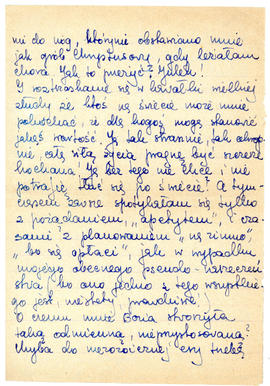 mi do nóg, którymi obstawiano mnie
jak grób Chrystusowy, gdy leżałam
chora. Jak to przeżyć? Julek!
I roztrzaskane są w kawałki wielkiej
złudy że ktoś na świecie może mnie
pokochać, że dla kogoś mogę stanowić
jakąś wartość. Ja tak strasznie, tak okrop
nie, całą siłą życia pragnę być
kochana! Ja bez tego nie chcę i nie
potrafię tłuc się po świecie! A tym-
czasem zawsze spotykałam się tylko
z pożądaniem, "apetytem", i cza-
sami z planowaniem "na zimno",
"bo się opłaci", jak w wypadku
mojego obecnego pseudo-narzeczeń
stwa, bo ono jedno z tego wszystkie-
go jest, niestety, prawdziwe!
O czemu mnie Bozia stworzyła
taką odmienną, nieprzystosowaną?
Chyba do nierozłącznej, czy trzeba,